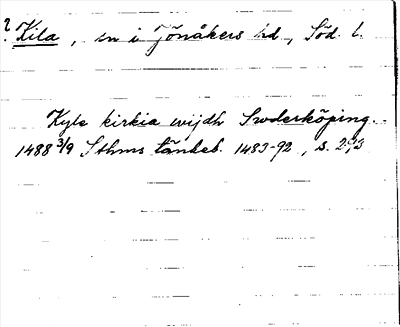 ? Kila, sn i Jönåkers hd, Söd. l.
Kyle kirkia wijdh Swderköping.
1488 3/9 Sthms tänkeb. 1483-92, s. 293